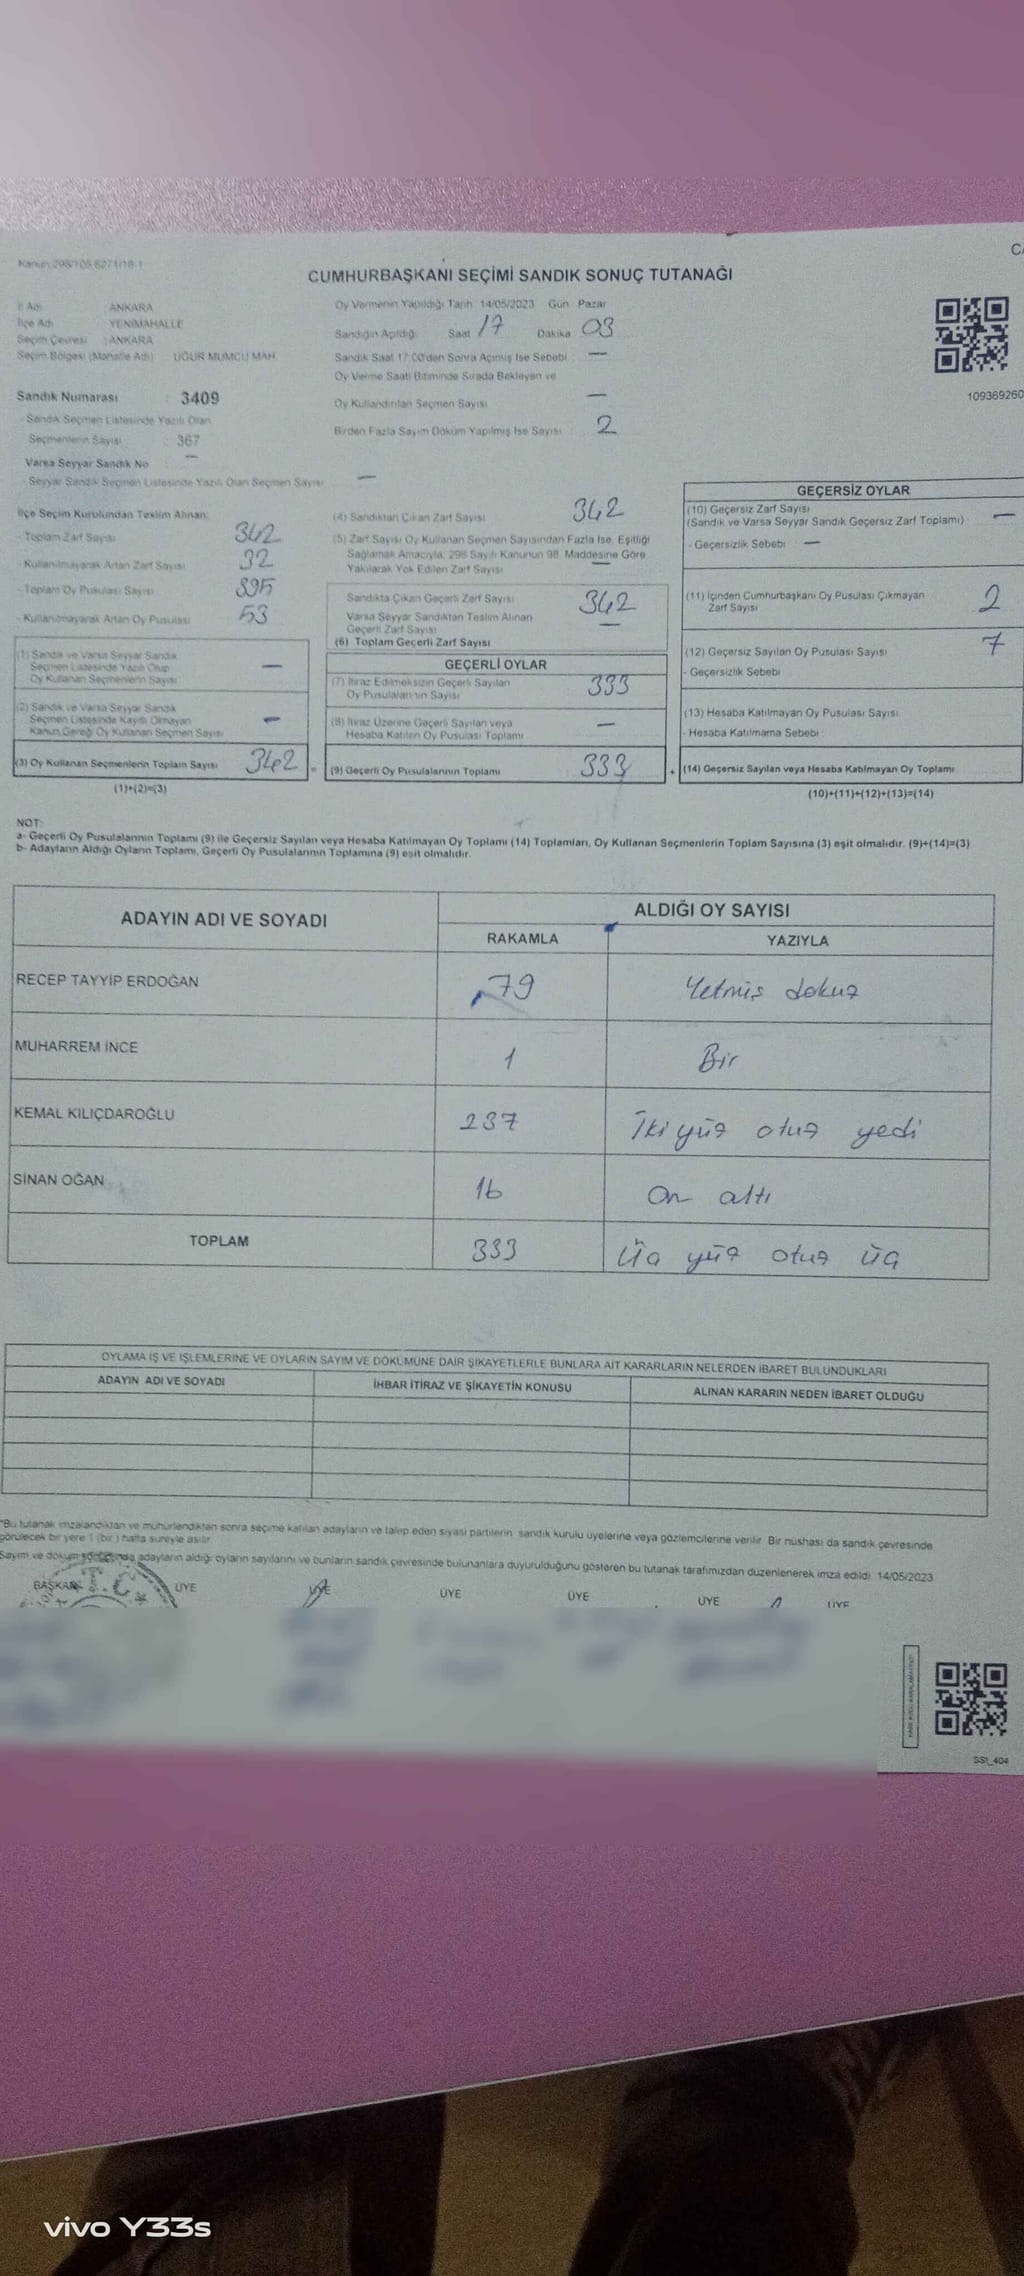 Kanun:298/105-6271/18-1
CUMHURBAŞKANI SEÇİMİ SANDIK SONUÇ TUTANAĞI
İl Adı : ANKARA
İlçe Adı : YENİMAHALLE
Seçim Çevresi : ANKARA
Seçim Bölgesi (Mahalle Adı) : UĞUR MUMCU MAH.
Oy Vermenin Yapıldığı Tarih 14/05/2023 Gün Pazar
Sandığın Açıldığı Saat 17 Dakika 03
Sandık Saat 17:00'den Sonra Açılmış İse Sebebi : —
Oy Verme Saati Bitiminde Sırada Bekleyen ve
Oy Kullandırılan Seçmen Sayısı —
Birden Fazla Sayım Döküm Yapılmış İse Sayısı : 2
109369260
Sandık Numarası : 3409
- Sandık Seçmen Listesinde Yazılı Olan
Seçmenlerin Sayısı : 367
Varsa Seyyar Sandık No : —
- Seyyar Sandık Seçmen Listesinde Yazılı Olan Seçmen Sayısı : —
İlçe Seçim Kurulundan Teslim Alınan:
- Toplam Zarf Sayısı 342
- Kullanılmayarak Artan Zarf Sayısı 32
- Toplam Oy Pusulası Sayısı 395
- Kullanılmayarak Artan Oy Pusulası 53
(1) Sandık ve Varsa Seyyar Sandık
Seçmen Listesinde Yazılı Olup
Oy Kullanan Seçmenlerin Sayısı —
(2) Sandık ve Varsa Seyyar Sandık
Seçmen Listesinde Kayıtlı Olmayan
Kanun Gereği Oy Kullanan Seçmen Sayısı —
(3) Oy Kullanan Seçmenlerin Toplam Sayısı 342
(1)+(2)=(3)
(4) Sandıktan Çıkan Zarf Sayısı 342
(5) Zarf Sayısı Oy Kullanan Seçmen Sayısından Fazla İse, Eşitliği
Sağlamak Amacıyla; 298 Sayılı Kanunun 98. Maddesine Göre
Yakılarak Yok Edilen Zarf Sayısı —
Sandıkta Çıkan Geçerli Zarf Sayısı 342
Varsa Seyyar Sandıktan Teslim Alınan
Geçerli Zarf Sayısı —
(6) Toplam Geçerli Zarf Sayısı
GEÇERLİ OYLAR
(7) İtiraz Edilmeksizin Geçerli Sayılan
Oy Pusulalarının Sayısı 333
(8) İtiraz Üzerine Geçerli Sayılan veya
Hesaba Katılan Oy Pusulası Toplamı —
(9) Geçerli Oy Pusulalarının Toplamı 333
GEÇERSİZ OYLAR
(10) Geçersiz Zarf Sayısı
(Sandık ve Varsa Seyyar Sandık Geçersiz Zarf Toplamı) —
- Geçersizlik Sebebi : —
(11) İçinden Cumhurbaşkanı Oy Pusulası Çıkmayan
Zarf Sayısı 2
(12) Geçersiz Sayılan Oy Pusulası Sayısı 7
- Geçersizlik Sebebi
(13) Hesaba Katılmayan Oy Pusulası Sayısı
- Hesaba Katılmama Sebebi
(14) Geçersiz Sayılan veya Hesaba Katılmayan Oy Toplamı
(10)+(11)+(12)+(13)=(14)
NOT:
a- Geçerli Oy Pusulalarının Toplamı (9) ile Geçersiz Sayılan veya Hesaba Katılmayan Oy Toplamı (14) Toplamları, Oy Kullanan Seçmenlerin Toplam Sayısına (3) eşit olmalıdır. (9)+(14)=(3)
b- Adayların Aldığı Oyların Toplamı, Geçerli Oy Pusulalarının Toplamına (9) eşit olmalıdır.
ADAYIN ADI VE SOYADI
ALDIĞI OY SAYISI
RAKAMLA YAZIYLA
RECEP TAYYİP ERDOĞAN 79 Yetmiş dokuz
MUHARREM İNCE 1 Bir
KEMAL KILIÇDAROĞLU 237 İki yüz otuz yedi
SİNAN OĞAN 16 On altı
TOPLAM 333 Üç yüz otuz üç
OYLAMA İŞ VE İŞLEMLERİNE VE OYLARIN SAYIM VE DÖKÜMÜNE DAİR ŞİKAYETLERLE BUNLARA AİT KARARLARIN NELERDEN İBARET BULUNDUKLARI
ADAYIN ADI VE SOYADI İHBAR İTİRAZ VE ŞİKAYETİN KONUSU ALINAN KARARIN NEDEN İBARET OLDUĞU
*Bu tutanak imzalandıktan ve mühürlendikten sonra seçime katılan adayların ve talep eden siyasi partilerin sandık kurulu üyelerine veya gözlemcilerine verilir. Bir nüshası da sandık çevresinde
görülecek bir yere 1 (bir) hafta süreyle asılır.
Sayım ve döküm sonucunda adayların aldığı oyların sayılarını ve bunların sandık çevresinde bulunanlara duyurulduğunu gösteren bu tutanak tarafımızdan düzenlenerek imza edildi. 14/05/2023
BAŞKAN ÜYE ÜYE ÜYE ÜYE ÜYE ÜYE
T.C.
SS1_404
vivo Y33s